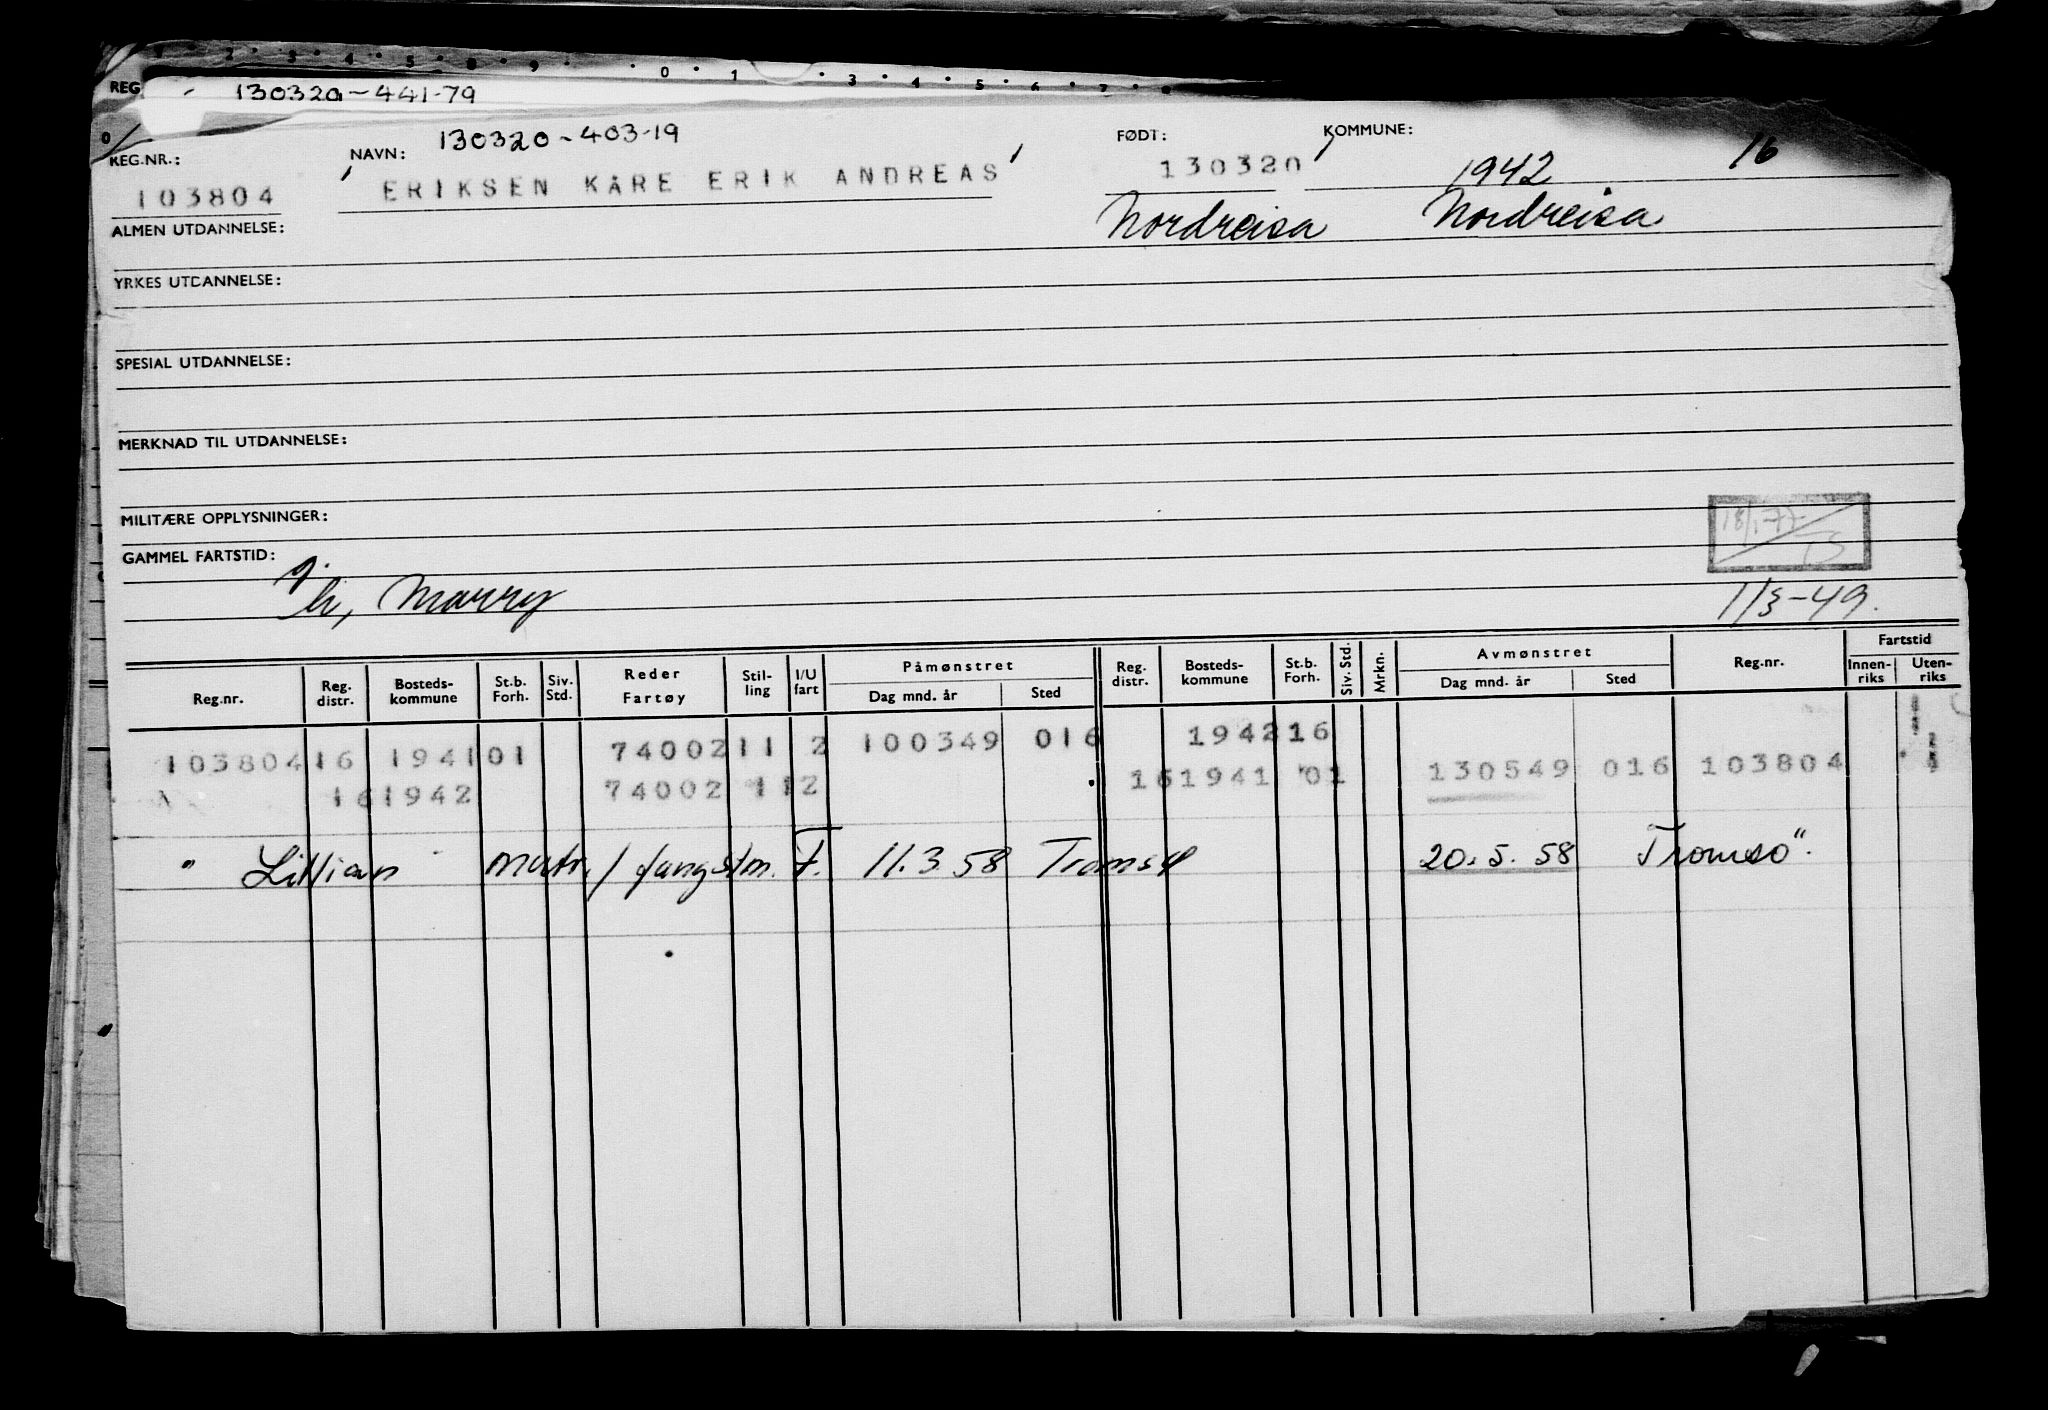 REG
130320-441-79
REG.NR.: NAVN: 130320-403-19 FØDT: KOMMUNE:
103804 ERIKSEN KÅRE ERIK ANDREAS 130320 1942 16
Nordreisa Nordreisa
ALMEN UTDANNELSE:
YRKES UTDANNELSE:
SPESIAL UTDANNELSE:
MERKNAD TIL UTDANNELSE:
MILITÆRE OPPLYSNINGER:
GAMMEL FARTSTID:
Marry 1/3-49.
Reg.nr. Reg. distr. Bosteds- kommune St.b. Forh. Siv. Std. Reder Fartøy Stil- ling I/U fart Påmønstret Dag mnd. år Sted Reg. distr. Bosteds- kommune St.b. Forh. Siv. Std. Mrkn. Avmønstret Dag mnd. år Sted Reg.nr. Fartstid Innen- riks Uten- riks
103804 16 1941 01 74002 11 2 100349 016 1942 16
16 1942 74002 11 2 16 1941 01 130549 016 103804
" Lillian matr./fangstm. F. 11.3.58 Tromsø 20.5.58 Tromsö".